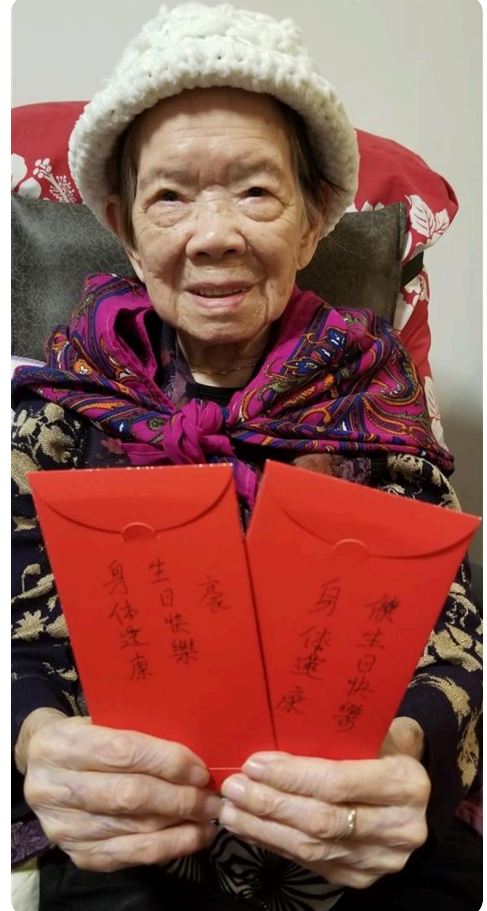 生日快樂
身体建康
生日快樂
身体建康